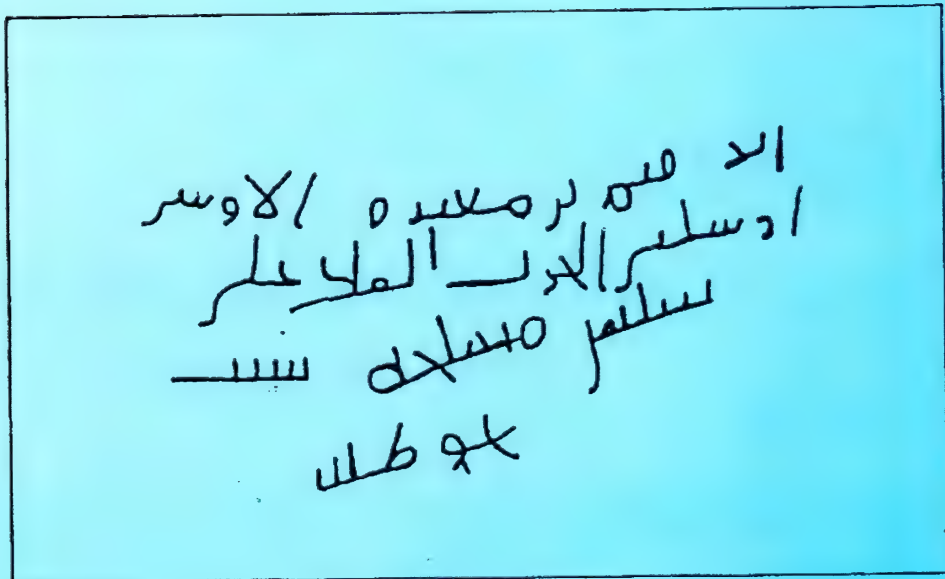 ابرهيم بر مغيره الاوسي
ارسلني الحرث الملك علي
سليمن مسلحه سنت